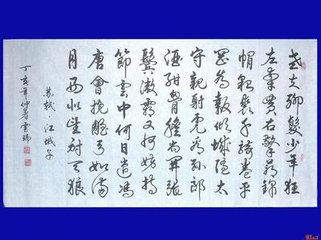 老夫聊發少年狂
左牽黃右擎蒼錦
帽貂裘千騎卷平
岡為報傾城隨太
守親射虎看孫郎
酒酣胸膽尚開張
鬢微霜又何妨持
節雲中何日遣馮
唐會挽雕弓如滿
月西北望射天狼
蘇軾·江城子
丁亥年仲